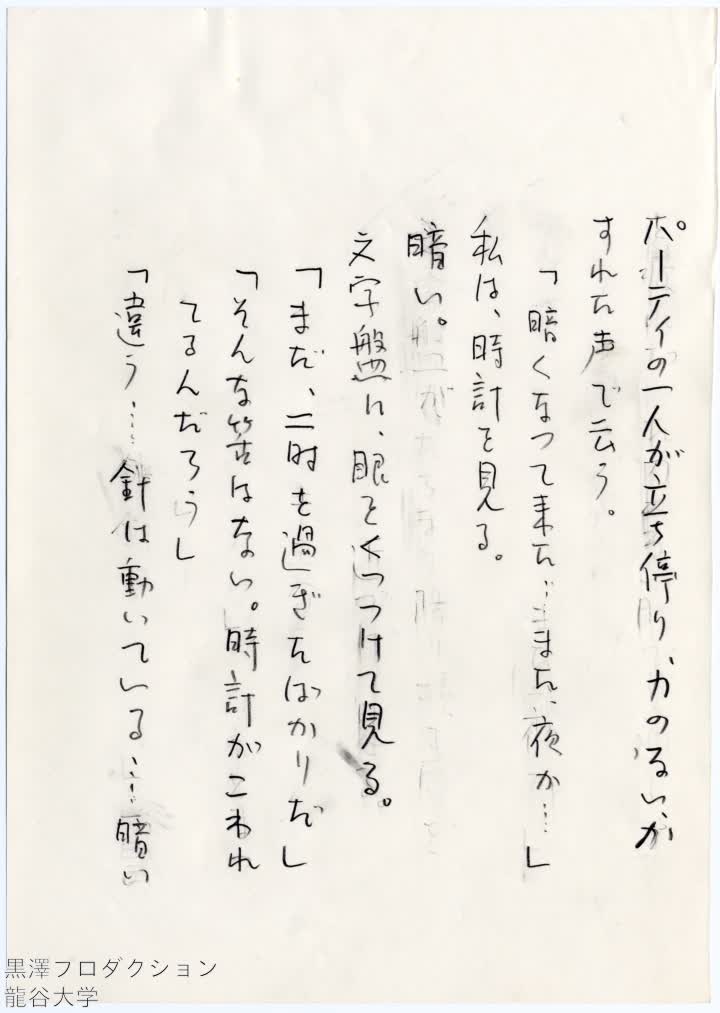 パーティの一人が立ち停り、力のないか
すれた声で云う。
「暗くなって来た……また、夜か……」
私は、時計を見る。
暗い。
文字盤に、眼をくっつけて見る。
「まだ、二時を過ぎたばかりだ」
「そんな筈はない。時計がこわれ
てるんだろう」
「違う……針は動いている……暗い
黒澤プロダクション
龍谷大学